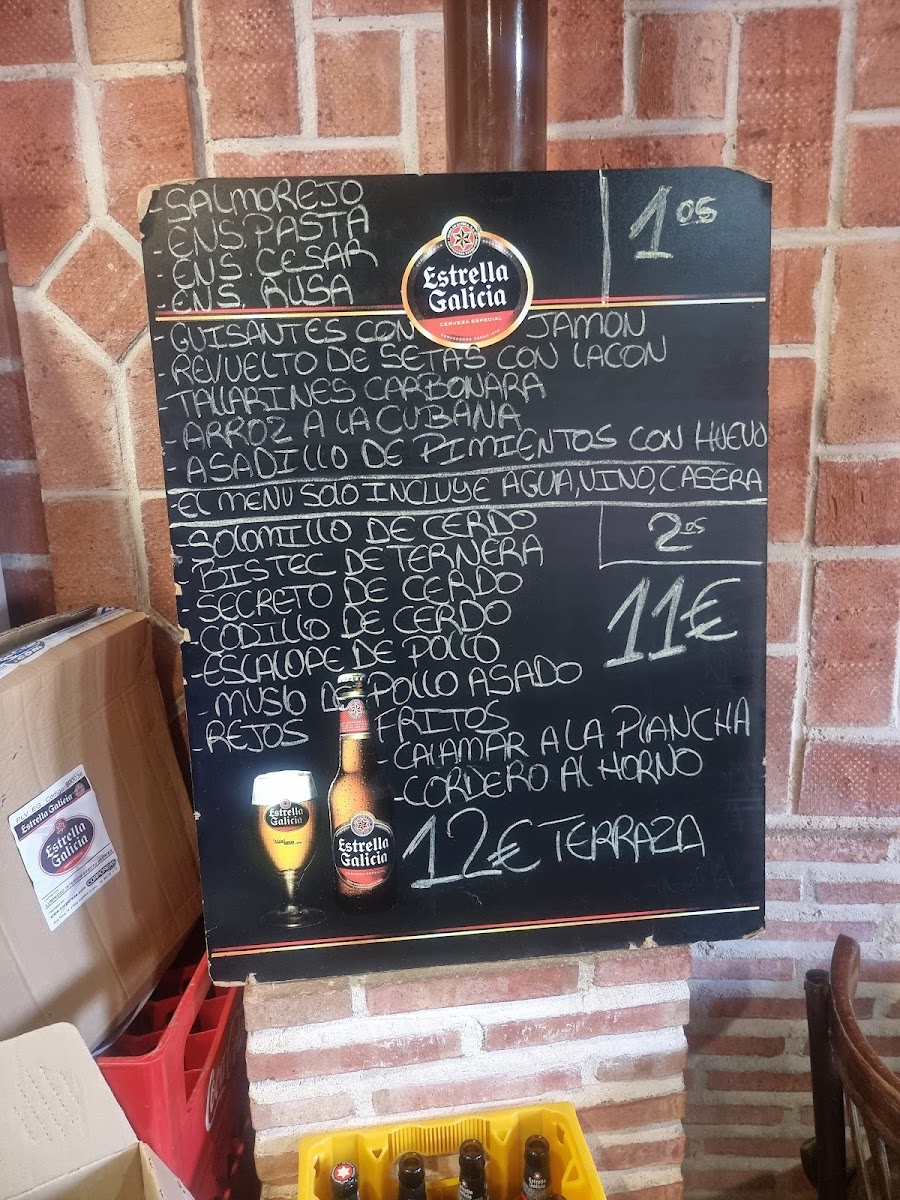 - SALMOREJO
- ENS. PASTA
- ENS CESAR
- ENS. RUSA
1os
Estrella
Galicia
CERVEZA ESPECIAL
- GUISANTES CON JAMON
- REVUELTO DE SETAS CON LACON
- TALLARINES CARBONARA
- ARROZ A LA CUBANA
- ASADILLO DE PIMIENTOS CON HUEVO
- EL MENU SOLO INCLUYE AGUA, VINO, CASERA
2os
- SOLOMILLO DE CERDO
- BISTEC DE TERNERA
- SECRETO DE CERDO
- CODILLO DE CERDO
- ESCALOPE DE POLLO
- MUSLO DE POLLO ASADO
- REJOS FRITOS
11€
- CALAMAR A LA PLANCHA
- CORDERO AL HORNO
12€ TERRAZA
Estrella
Galicia
Estrella
Galicia
Estrella Galicia
Estrella
Galicia